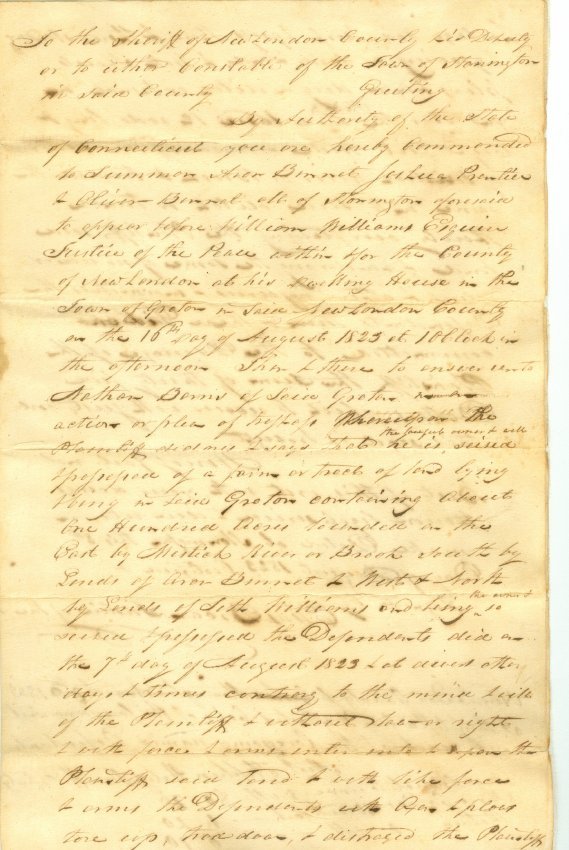 To the Sheriff of New London County his Deputy
or to either Constable of the Town of Stonington
in said County Greeting
By Authority of the State
of Connecticut you are hereby Commanded
to Summon Aron Binnet Joshua Prentice
& Oliver Bennet all of Stonington aforesaid
to appear before William Williams Esquire
Justice of the Peace within & for the County
of New London at his Dwelling House in the
Town of Groton in said New London County
on the 16th Day of August 1823 at 1 oClock in
the afternoon Then & there to answer unto
Nathan Barns of said Groton in an
action or plea of trespass Whereupon The
the proper owner & well
Plaintiff declares & says that he is seised
& possessed of a farm or tract of land lying
& being in said Groton containing about
One Hundred Acres bounded on the
East by Mistick River or Brook South by
Lands of Aron Binnet & West & North
the owner &
by Lands of Seth Williams and being so
seized & possessed the Defendants did on
the 7th day of August 1823 & at divers other
days & times contrary to the mind & will
of the Plaintiff & without law or right
& with force & arms enter into & upon the
Plaintiff said land & with like force
& arms the Defendants with & plow
tore up, trod down, & the Plaintiff